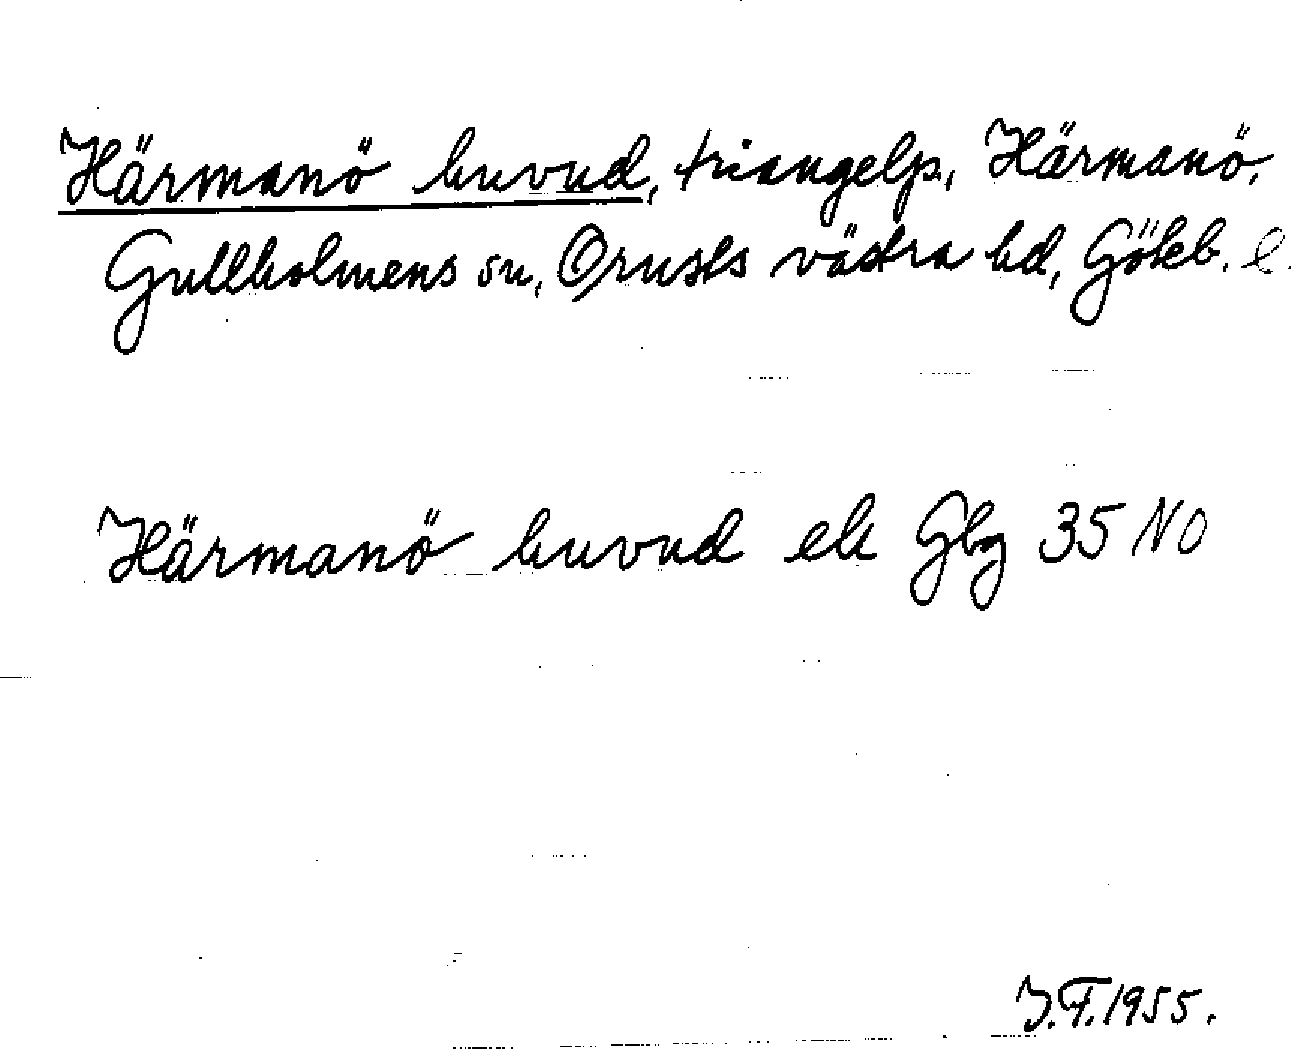 Härmanö huvud, triangelp., Härmanö,
Gullholmens sn, Orusts västra hd, Göteb. l.
Härmanö huvud ek Gbg 35 NO
J.F. 1955.